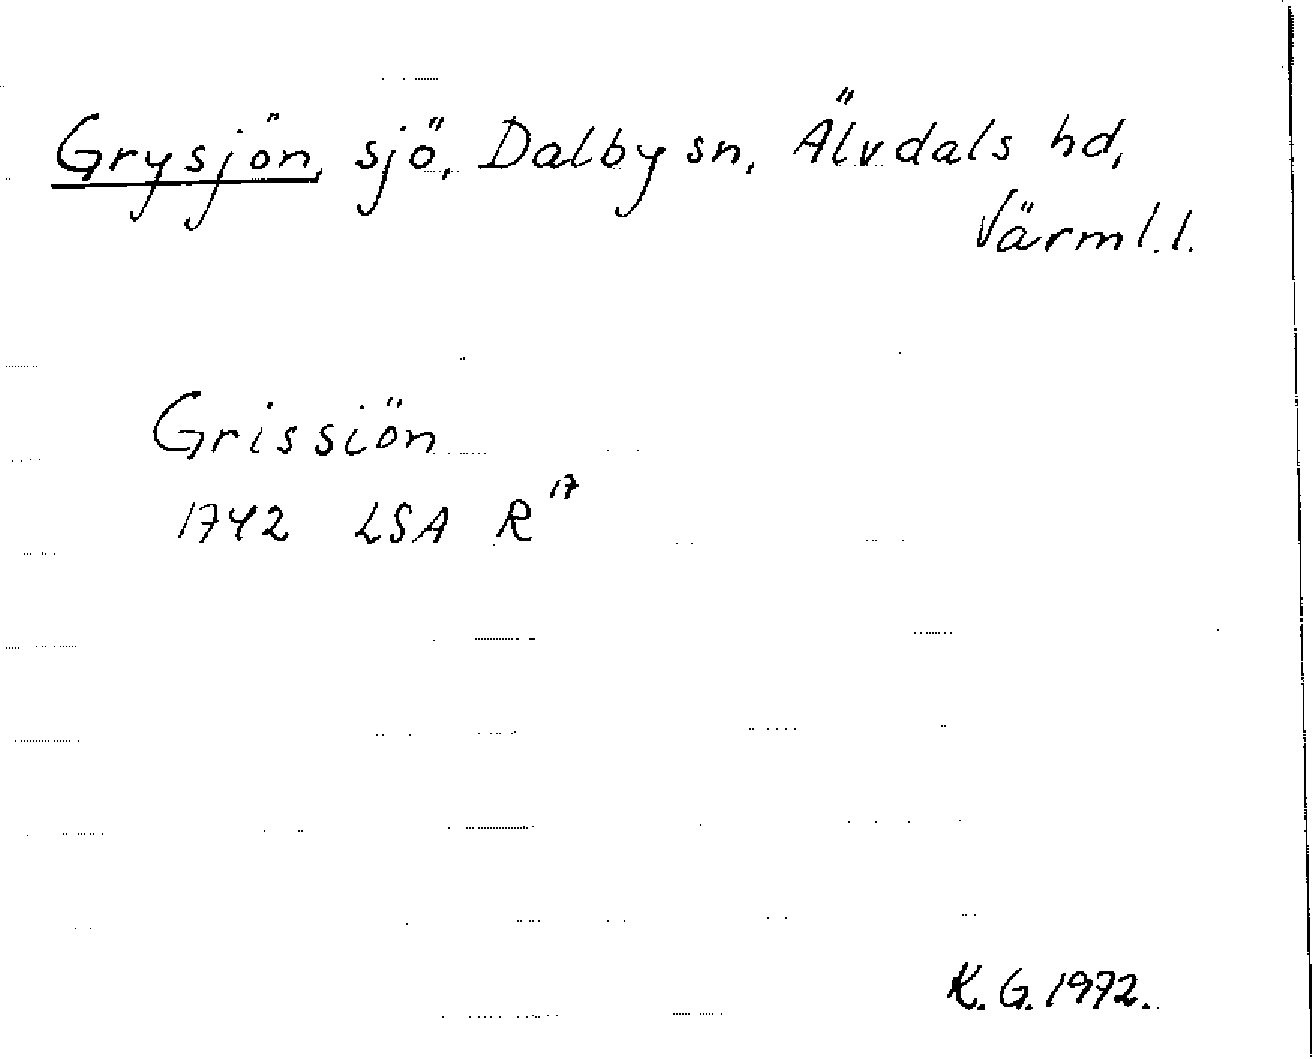 Grysjön, sjö, Dalby sn, Älvdals hd,
Värml. l.
Grissiön
1742 LSA R 17
K. G. 1972.